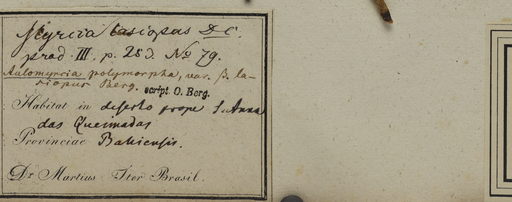 Myrcia lasiopus DC.
prod. III. p. 253. No 79.
Aulomyrcia polymorpha, var. β. la-
siopus Berg.
script. O. Berg.
Habitat in deserto prope S. Anna
das Queimadas
Provinciae Bahiensis.
Dr Martius Iter Brasil.